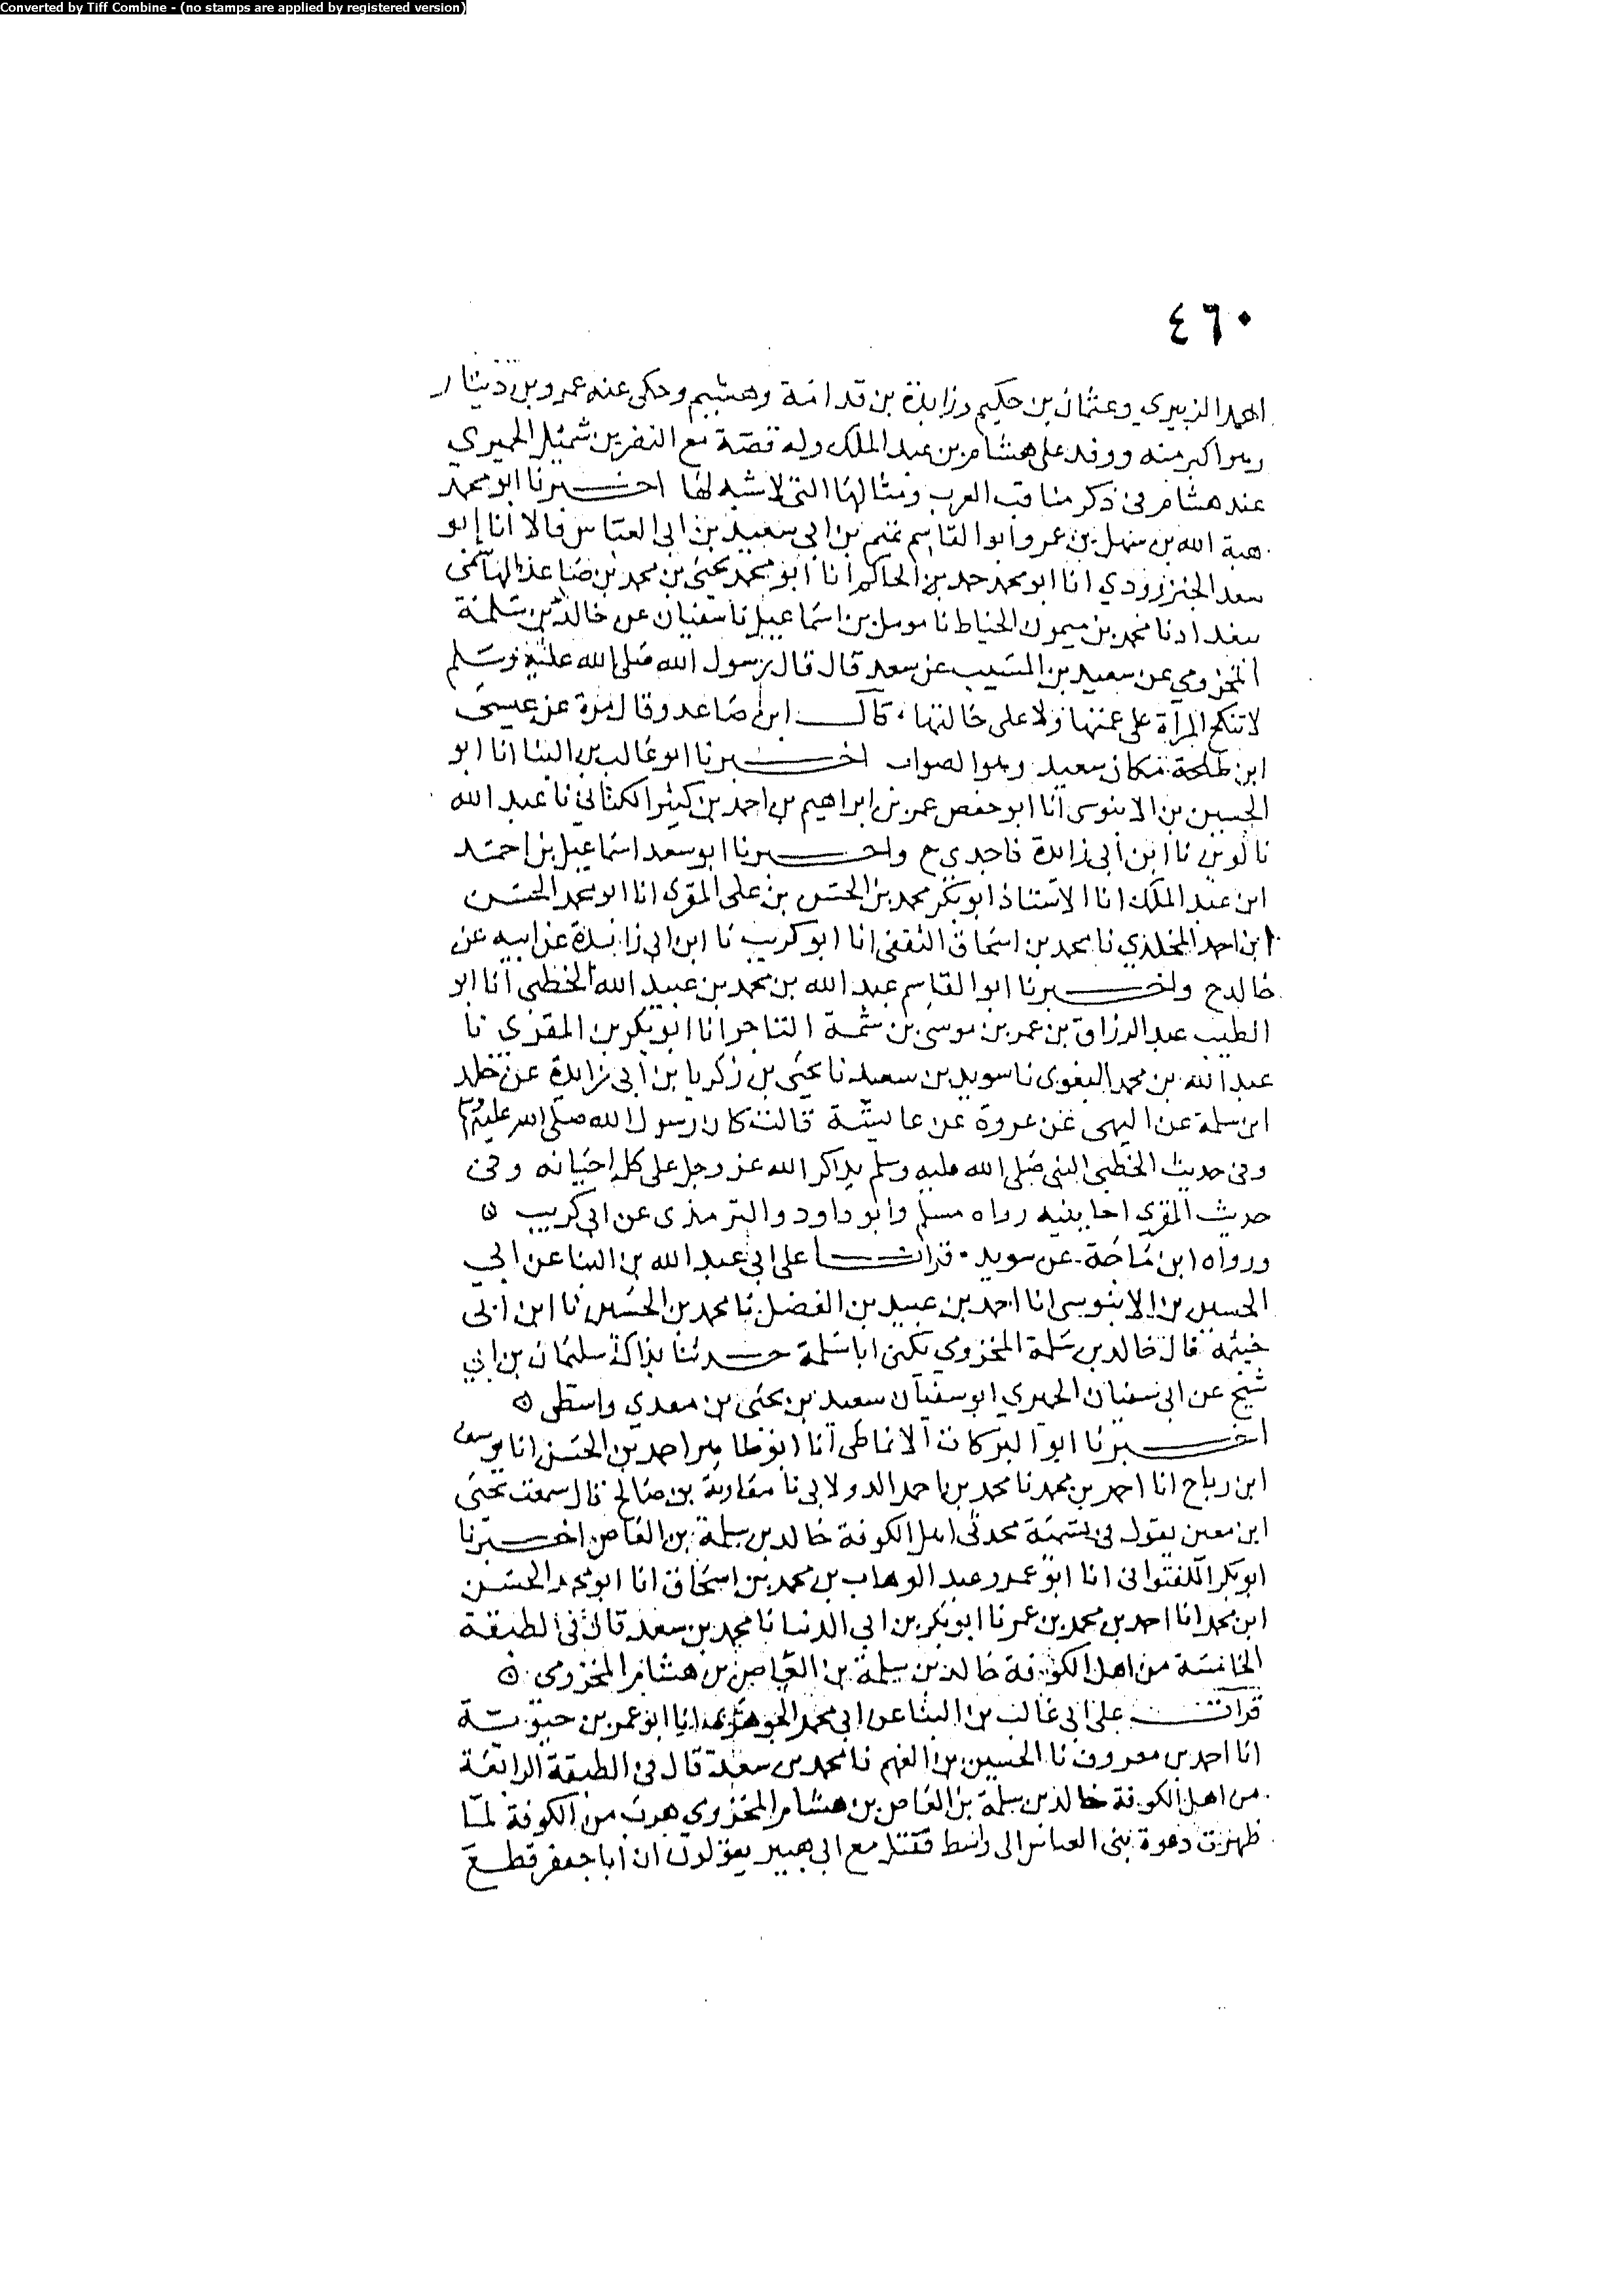 Converted by Tiff Combine - (no stamps are applied by registered version)
٤٦٠
احمد الزبيري وعثمان بن حكيم وزايدة بن قدامة وهشيم وحكى عنه عمرو بن دينار
وهو اكبر منه ووفد على هشام بن عبد الملك وله قصة مع النضر بن شميل الحميري
عند هشام في ذكر مناقب العرب ومثالبها التي لا شبه لها اخبرنا ابو محمد
هبة الله بن سهل بن عمر وابو القاسم تميم بن ابي سعيد بن ابي العباس قالا انا ابو
سعد الجنزرودي انا ابو محمد بن الحاكم انا ابو محمد يحيى بن محمد بن صاعد الهاشمي
ببغداد نا محمد بن ميمون الخياط نا مومل بن اسماعيل نا سفيان عن خالد بن سلمة
المخزومي عن سعيد بن المسيب عن سعد قال قال رسول الله صلى الله عليه وسلم
لا تنكح المرأة على عمتها ولا على خالتها، قال ابن صاعد وقال مرة عن عيسى
ابن طلحة مكان سعيد وهو الصواب اخبرنا ابو غالب بن البنا انا ابو
الحسين بن الابنوسي انا ابو حفص عمر بن ابراهيم بن احمد بن كثير الكتاني نا عبد الله
نا لوين نا ابن ابي زائدة ح واخبرنا ابو سعد اسماعيل بن احمد
ابن عبد الملك انا الاستاذ ابو بكر محمد بن الحسن بن علي المقرى انا ابو محمد الحسن
ابن احمد المخلدي نا محمد بن اسحاق الثقفي انا ابو كريب نا ابن ابي زائدة عن ابيه عن
خالد ح واخبرنا ابو القاسم عبد الله بن محمد بن عبيد الله الخطبي انا ابو
الطيب عبد الرزاق بن عمر بن موسى بن شمة التاجر انا ابو بكر بن المقرى نا
عبد الله بن محمد البغوي نا سويد بن سعيد نا يحيى بن زكريا بن ابي زايدة عن خالد
ابن سلمة عن البهي عن عروة عن عايشة قالت كان رسول الله صلى الله عليه وسلم
وفي حديث الخطبي النبي صلى الله عليه وسلم يذكر الله عز وجل على كل احيانه وفي
حديث المقرى احايينه رواه مسلم وابو داود والترمذي عن ابي كريب ه
ورواه ابن ماجة عن سويد. قرأت على ابي عبد الله بن البنا عن ابي
الحسين بن الابنوسي انا احمد بن عبيد بن الفضل نا محمد بن الحسين نا ابن ابي
خيثمة قال خالد بن سلمة المخزومي يكنى ابا سلمة حدثنا بذاك سليمان بن ابي
شيخ عن ابي سفيان الحميري ابو سفيان سعيد بن يحيى بن مهدي واسطي ه
اخبرنا ابو البركات الانماطي انا ابو طاهر احمد بن الحسن انا يوسف
ابن رباح انا احمد بن محمد نا محمد بن احمد الدولابي نا معاوية بن صالح قال سمعت يحيى
ابن معين يقول في تسمية محدثي اهل الكوفة خالد بن سلمة بن العاص اخبرنا
ابو بكر اللفتواني انا ابو عمرو عبد الوهاب بن محمد بن اسحاق انا ابو محمد الحسن
ابن محمد انا احمد بن محمد بن عمر نا ابو بكر بن ابي الدنيا نا محمد بن سعد قال في الطبقة
الخامسة من اهل الكوفة خالد بن سلمة بن العاص بن هشام المخزومي ه
قرأت على ابي غالب بن البنا عن ابي محمد الجوهري انا ابو عمر بن حيوية
انا احمد بن معروف نا الحسين بن الفهم نا محمد بن سعد قال في الطبقة الرابعة
من اهل الكوفة خالد بن سلمة بن العاص بن هشام المخزومي هرب من الكوفة لما
ظهرت دعوة بني العباس الى واسط فقتل مع ابي هبير يقولون ان ابا جعفر قطع